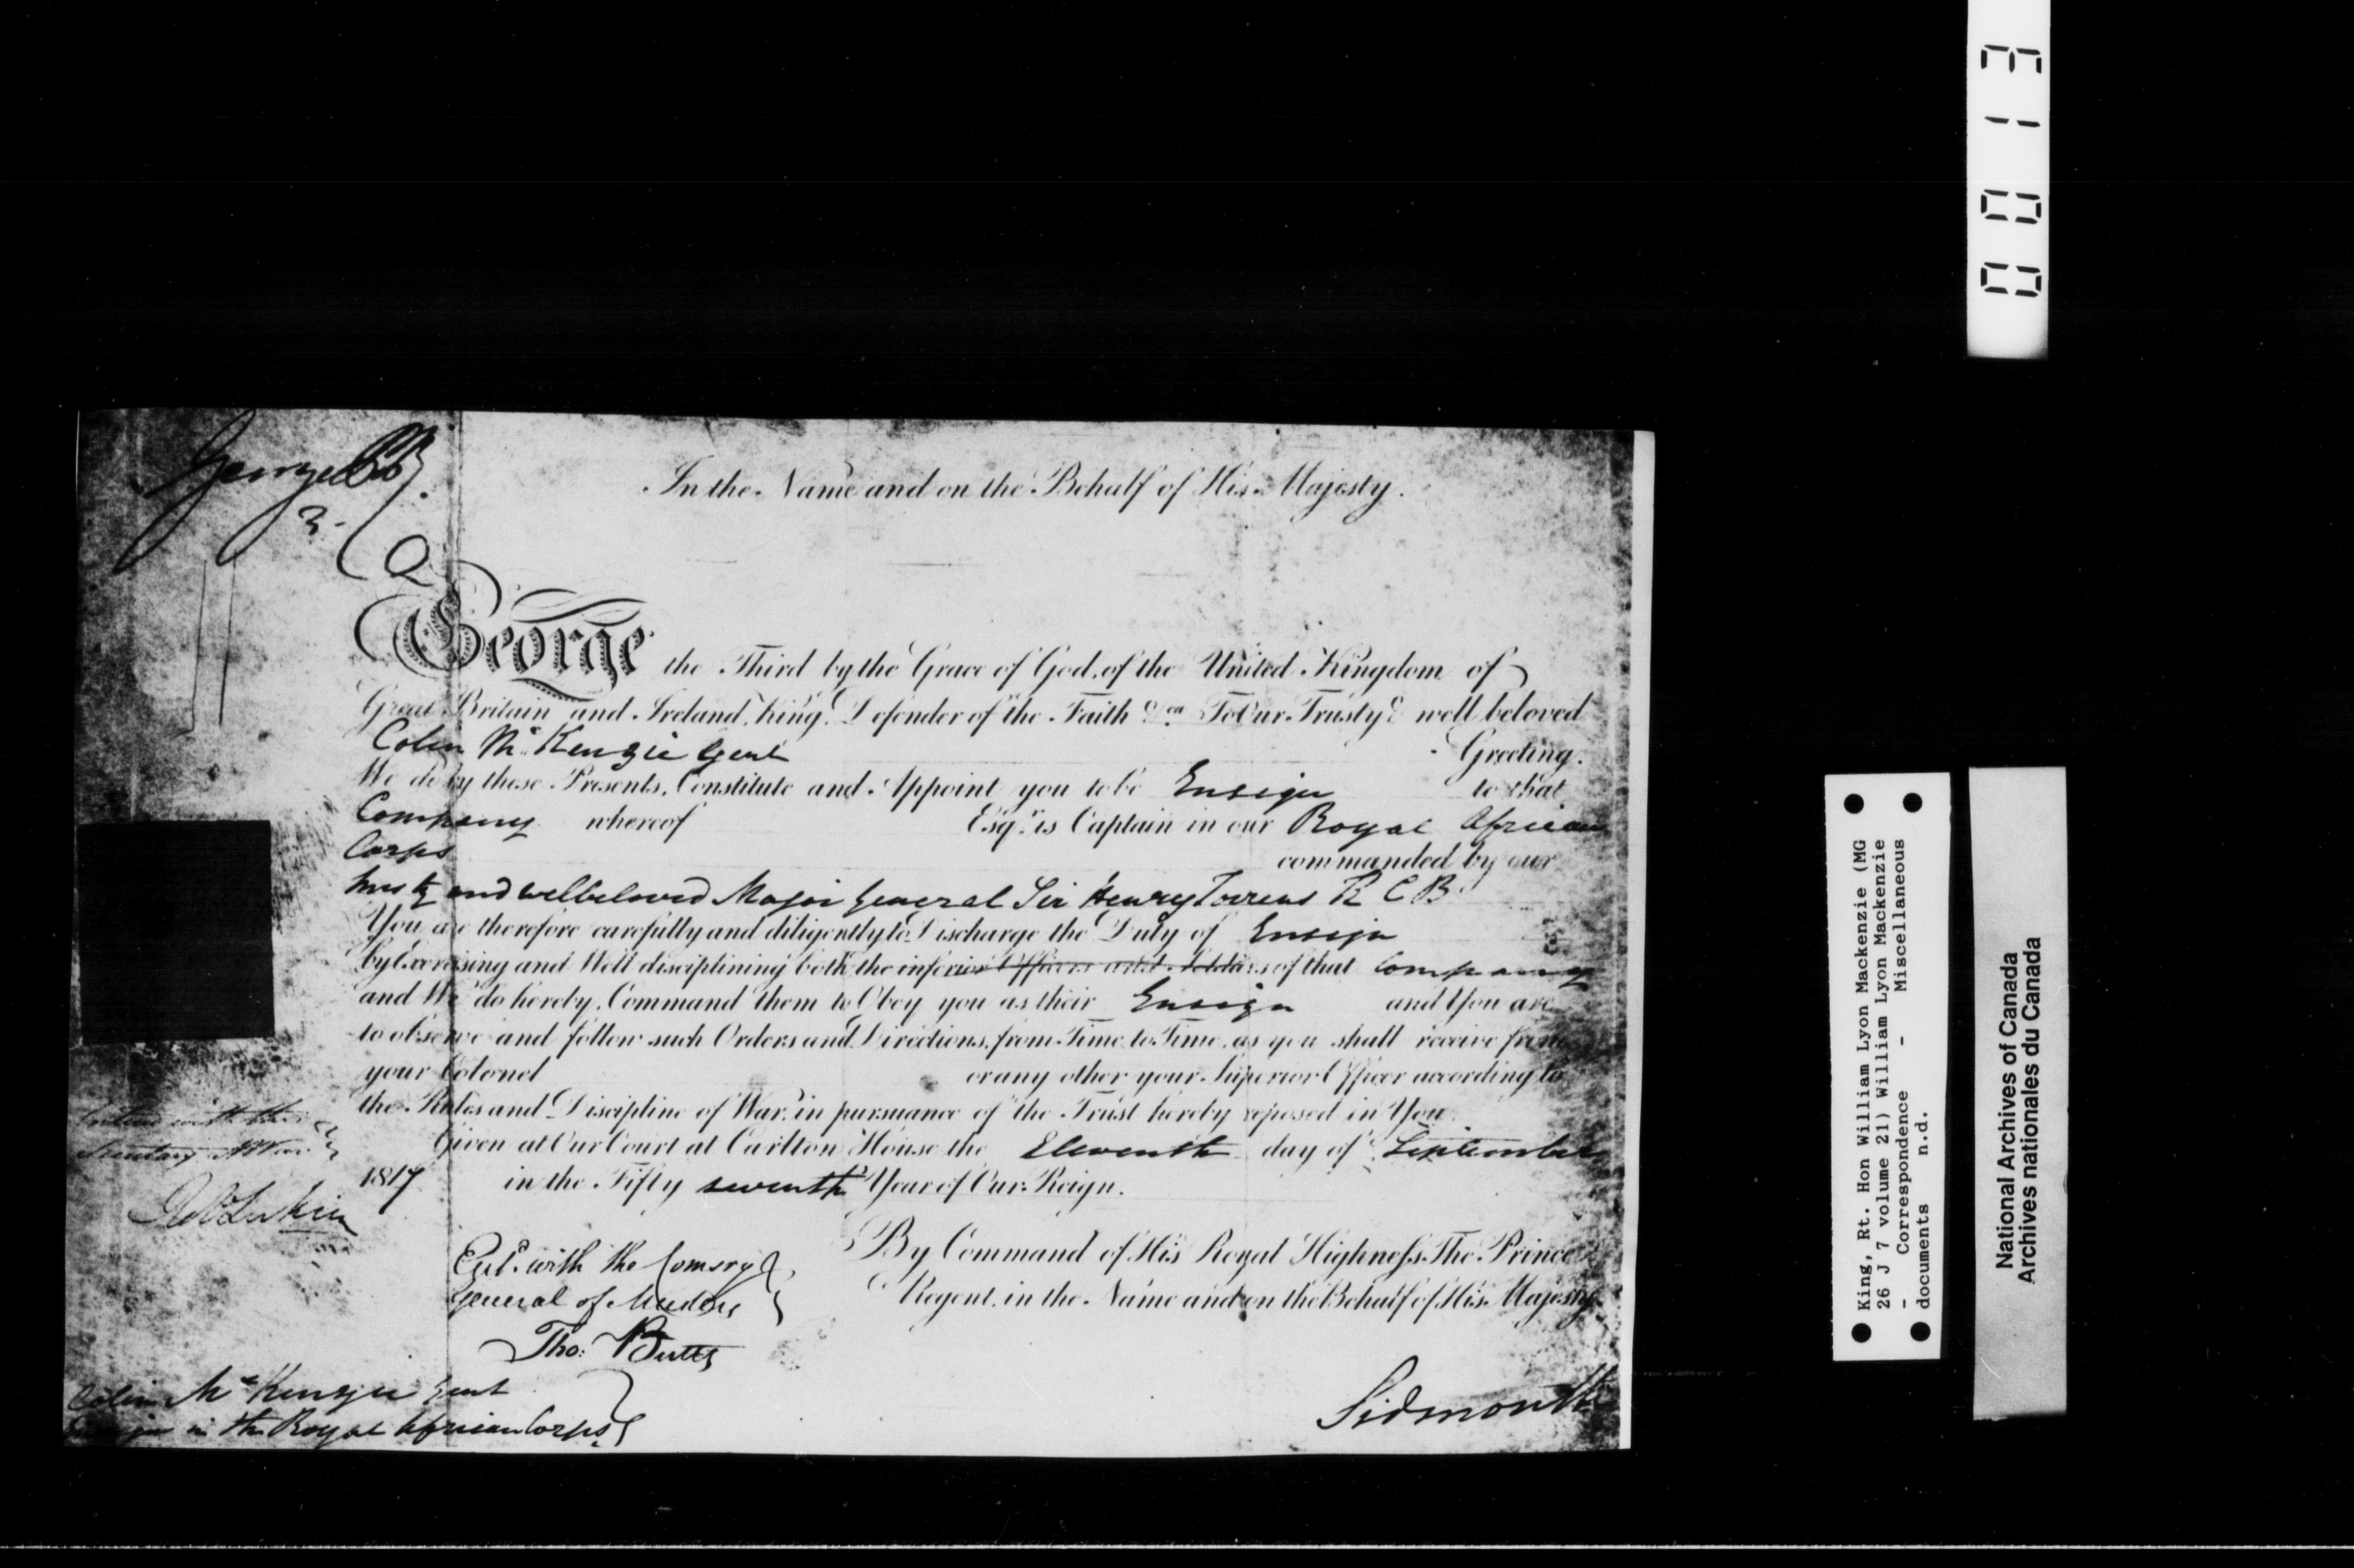 George P R
In the Name and on the Behalf of His Majesty.
George the Third by the Grace of God, of the United Kingdom of
Great Britain and Ireland, King, Defender of the Faith &ca To Our Trusty & well beloved
Colin Mc Kenzie Gent Greeting:
We do by these Presents, Constitute and Appoint you to be Ensign to that
Company whereof Esqr. is Captain in our Royal African
Corps commanded by our
trusty and welbeloved Major General Sir Henry Torrens K C B
You are therefore carefully and diligently to Discharge the Duty of Ensign
by Exercising and Well disciplining both the inferior Officers and Soldiers of that Company
and We do hereby Command them to Obey you as their Ensign and You are
to observe and follow such Orders and Directions, from Time to Time, as you shall receive from
your Colonel or any other your Superior Officer according to
the Rules and Discipline of War, in pursuance of the Trust hereby reposed in You.
Given at Our Court at Carlton House the Eleventh day of September
1817 in the Fifty seventh Year of Our Reign.
By Command of His Royal Highness The Prince
Regent, in the Name and on the Behalf of His Majesty.
Sidmouth
Entered with the
Secretary at War
Entd. with the Comsry
General of Musters
Thos: Butts
Colin Mc Kenzie Gent
Ensign in the Royal African Corps
0013
King, Rt. Hon William Lyon Mackenzie (MG
26 J 7 volume 21) William Lyon Mackenzie
- Correspondence - Miscellaneous
documents n.d.
National Archives of Canada
Archives nationales du Canada